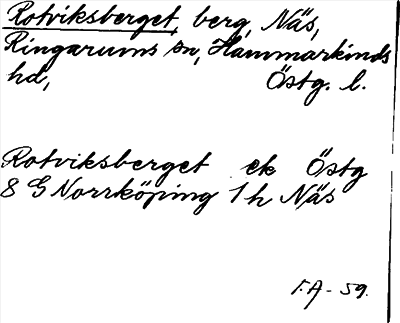 Rotviksberget, berg, Näs,
Ringarums sn, Hammarkinds
hd, Östg. l.
Rotviksberget ek Östg
8 G Norrköping 1h Näs
F.A - 59.